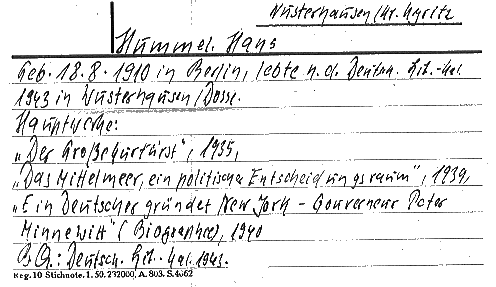 Wusterhausen/Kr. Kyritz
Hummel. Hans
Geb. 18.8.1910 in Berlin, lebte n.d. Deutsch. Lit.-Kal.
1943 in Wusterhausen/Dosse.
Hauptwerke:
„Der Große Kurfürst", 1935,
„Das Mittelmeer, ein politischer Entscheidungsraum", 1939,
„Ein Deutscher gründet New York - Gouverneur Peter
Minnewit" (Biographie), 1940
B.Qu.: Deutsch. Lit.-Kal. 1943.
Reg. 10 Stichnote. 1. 50. 232000, A. 803. S. 4062